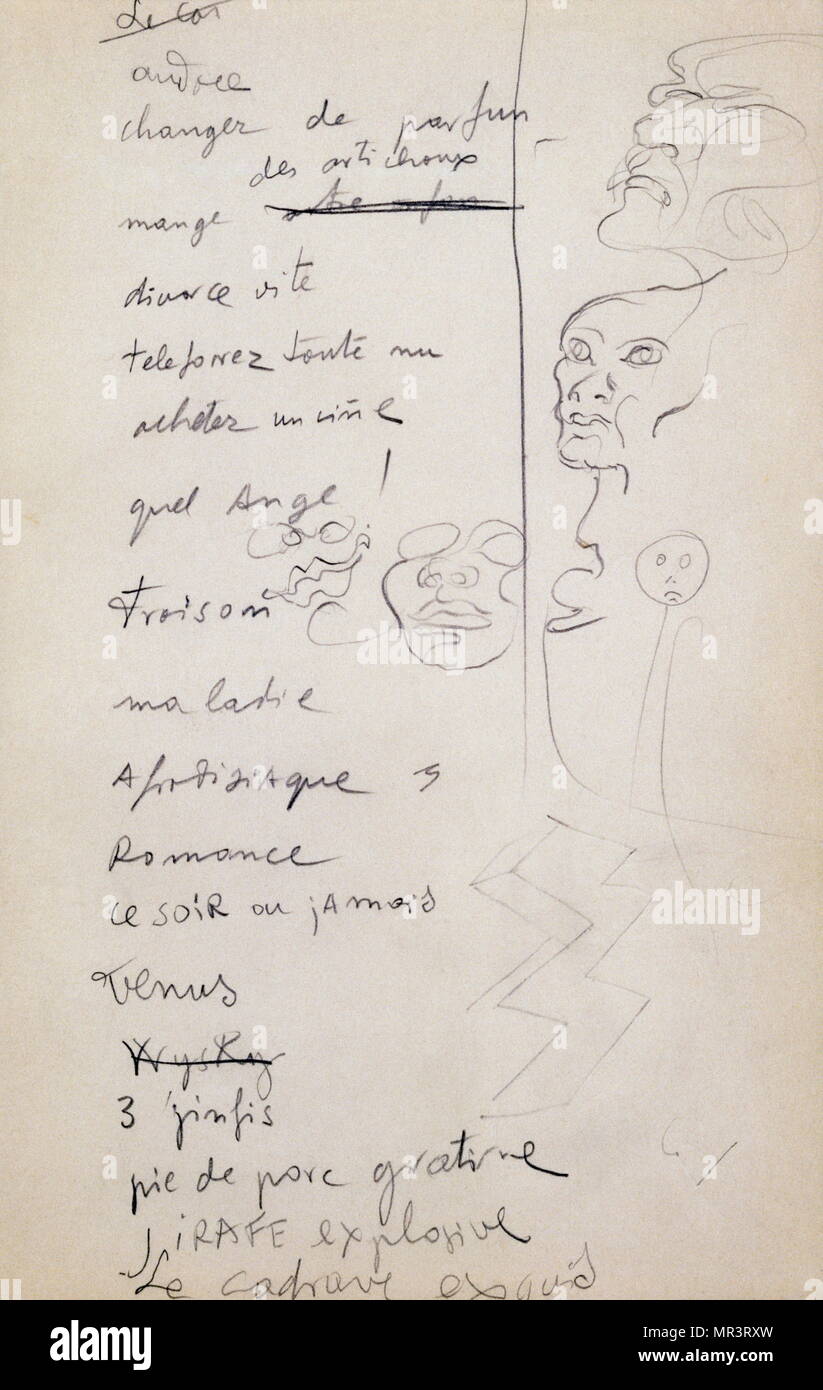 Le Cor
andree
changer de parfun
des artichoux
mange
divorce vite
telefonez toute nu
achetez un
quel Ange !
Froison
maladie
AfrodisiAque s
Romance
ce soiR ou jAmais
Venus
Wysky
3 ginfis
pie de porc gratine
JiRAFE explosive
Le cadrave exquis
alamy
Image ID: MR3RXW
www.alamy.com